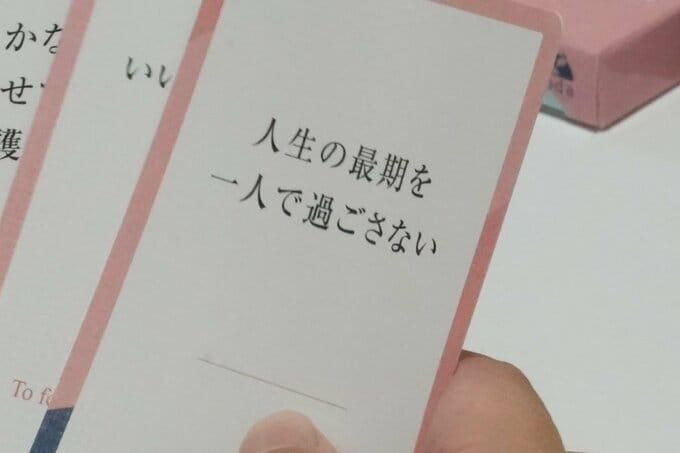 人生の最期を
一人で過ごさない
いい
かな
せ
護
To f